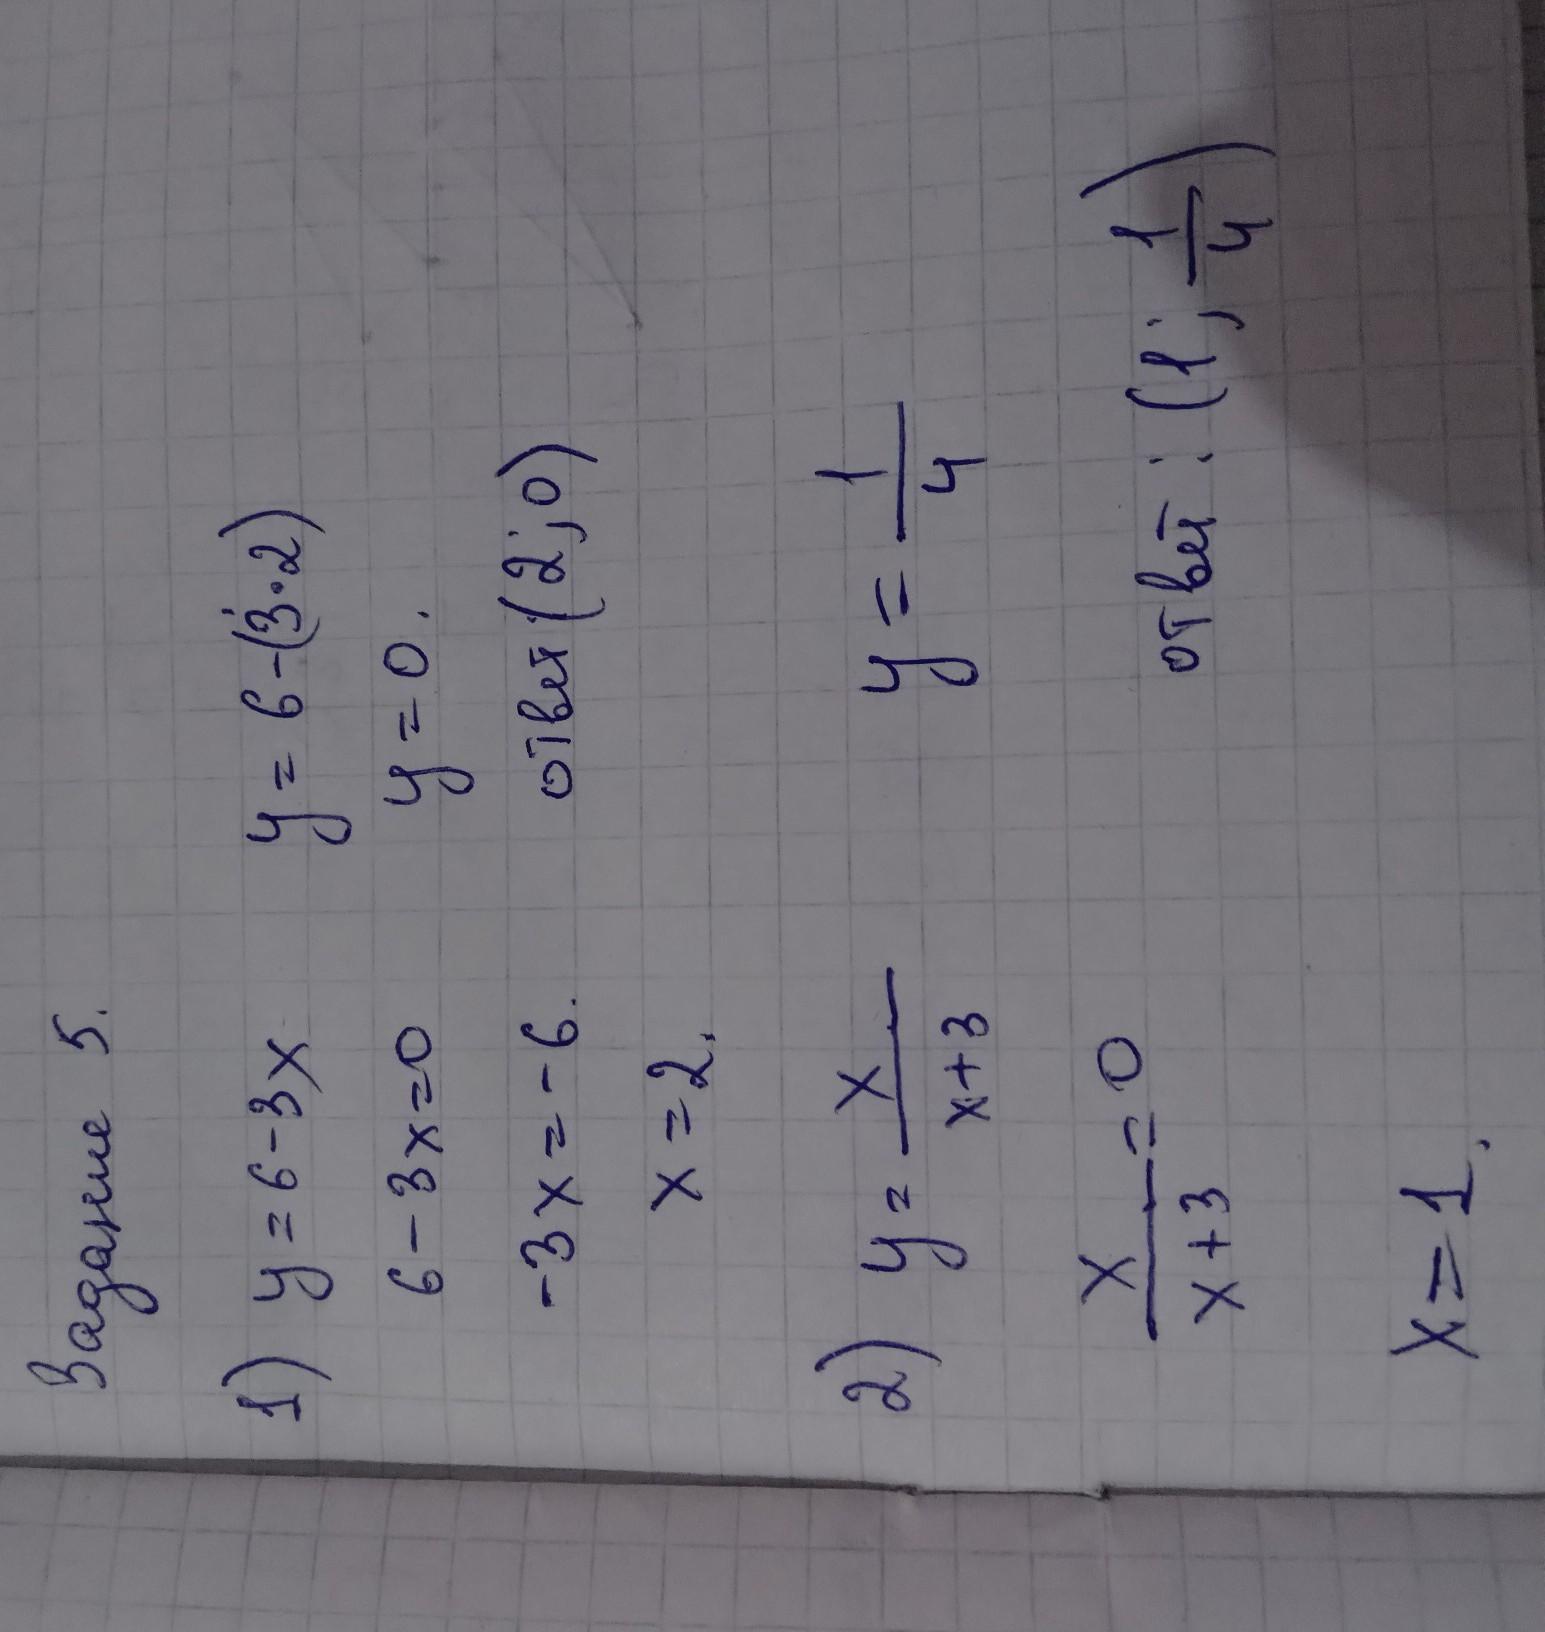 Задание 5.
1) y = 6 - 3x
y = 6 - (3·2)
6 - 3x = 0
y = 0.
-3x = -6.
ответ (2; 0)
x = 2.
2) y = x/(x+3)
y = 1/4
x/(x+3) = 0
ответ: (1; 1/4)
x = 1.